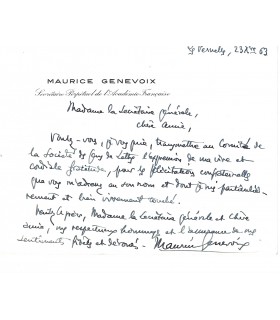 Les Vernelles, 23 Xbre 69
MAURICE GENEVOIX
Secrétaire Perpétuel de l'Académie Française
Madame la Secrétaire générale,
chère amie,
Voulez-vous, je vous prie, transmettre au Comité de
la Société des Gens de Lettres l'expression de ma vive et
cordiale gratitude, pour les félicitations confraternelles
que vous m'adressez en son nom et dont je suis particulière-
rement et bien vivement touché.
Veuillez agréer, Madame la Secrétaire générale et Chère
amie, mes respectueux hommages et l'assurance de mes
sentiments fidèles et dévoués. Maurice Genevoix